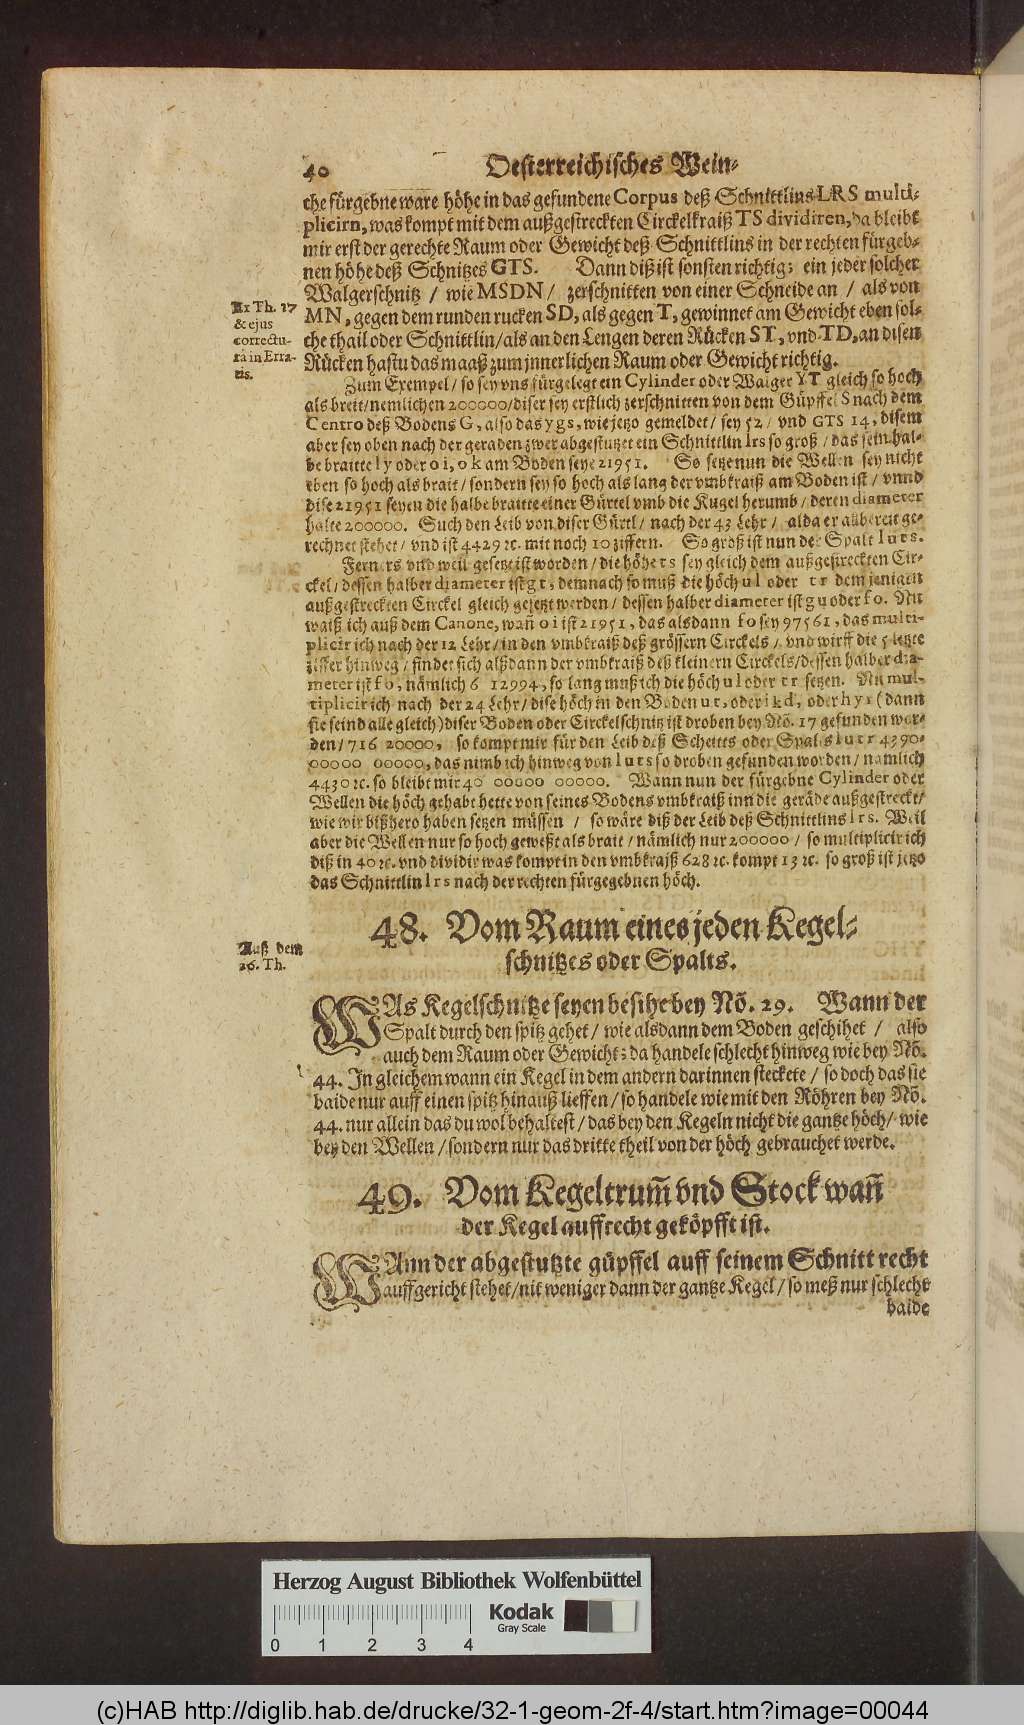 40 Oesterreichisches Wein-
che fürgebne ware höhe in das gefundene Corpus deß Schnittlins LRS multi-
plicirn, was kompt mit dem außgestreckten Circkelkraiß TS dividiren, da bleibt
mir erst der gerechte Raum oder Gewicht deß Schnittlins in der rechten fürgeb-
nen höhe deß Schnitzes GTS. Dann diß ist sonsten richtig; ein jeder solcher
Walgerschnitz / wie MSDN / zerschnitten von einer Schneide an / als von
MN, gegen dem runden rucken SD, als gegen T, gewinnet am Gewicht eben sol-
che thail oder Schnittlin / als an den Lengen deren Rücken ST, vnd TD, an disen
Rücken hastu das maaß zum jnnerlichen Raum oder Gewicht richtig.
Ex Th. 27
& ejus
correctu-
râ in Erra-
tis.
Zum Exempel / so sey vns fürgelegt ein Cylinder oder Walger YT gleich so hoch
als breit / nemlichen 200000 / diser sey erstlich zerschnitten von dem Güpffel S nach dem
Centro deß Bodens G, also das ygs, wie jetzo gemeldet / sey 52 / vnd GTS 14, disem
aber sey oben nach der geraden zwer abgestutzet ein Schnittlin lrs so groß / das sein hal-
be braitte ly oder oi, ok am Boden seye 21951. So setze nun die Wellen sey nicht
eben so hoch als brait / sondern sey so hoch als lang der vmbkraiß am Boden ist / vnnd
dise 21951 seyen die halbe braitte einer Gürtel vmb die Kugel herumb / deren diameter
halte 200000. Such den Leib von diser Gürtl / nach der 43 Lehr / alda er allbereit ge-
rechnet stehet / vnd ist 4429 ꝛc. mit noch 10 ziffern. So groß ist nun der Spalt luts.
Ferners vnd weil gesetzt ist worden / die höhe ts sey gleich dem außgestreckten Cir-
ckel / dessen halber diameter ist gt, demnach so muß die höch ul oder tr dem jenigen
außgestreckten Circkel gleich gesetzt werden / dessen halber diameter ist gu oder fo. Nu
waiß ich auß dem Canone, wañ oi ist 21951, das alsdann fo sey 97561, das multi-
plicir ich nach der 12 Lehr / in den vmbkraiß deß grössern Circkels / vnd wirff die 5 letzte
ziffer hinweg / findet sich alßdann der vmbkraiß deß kleinern Circkels / dessen halber dia-
meter ist fo, nämlich 6 12994, so lang muß ich die höch ul oder tr setzen. Nu mul-
tiplicir ich nach der 24 Lehr / dise höch in den Boden ut, oder ikd, oder hyt (dann
sie seind alle gleich) diser Boden oder Circkelschnitz ist droben bey Nõ. 17 gefunden wor-
den / 716 20000, so kompt mir für den Leib deß Scheitts oder Spalts lutr 4390-
00000 00000, das nimb ich hinweg von luts so droben gefunden worden / nämlich
4430 ꝛc. so bleibt mir 40 00000 00000. Wann nun der fürgebne Cylinder oder
Wellen die höch gehabt hette von seines Bodens vmbkraiß inn die geräde außgestreckt /
wie wir bißhero haben setzen müssen / so wäre diß der Leib deß Schnittlins lrs. Weil
aber die Wellen nur so hoch gewest als brait / nämlich nur 200000 / so multiplicir ich
diß in 40 ꝛc. vnd dividir was kompt in den vmbkraiß 628 ꝛc. kompt 13 ꝛc. so groß ist jetzo
das Schnittlin lrs nach der rechten fürgegebnen höch.
48. Vom Raum eines jeden Kegel-
schnitzes oder Spalts.
Auß dem
26. Th.
WAs Kegelschnitze seyen besihe bey Nõ. 29. Wann der
Spalt durch den spitz gehet / wie alsdann dem Boden geschihet / also
auch dem Raum oder Gewicht; da handele schlecht hinweg wie bey Nõ.
44. In gleichem wann ein Kegel in dem andern darinnen steckete / so doch das sie
baide nur auff einen spitz hinauß lieffen / so handele wie mit den Röhren bey Nõ.
44. nur allein das du wol behaltest / das bey den Kegeln nicht die gantze höch / wie
bey den Wellen / sondern nur das dritte theil von der höch gebrauchet werde.
49. Vom Kegeltrum̃ vnd Stock wañ
der Kegel auffrecht geköpfft ist.
WAnn der abgestutzte güpffel auff seinem Schnitt recht
auffgericht stehet / nit weniger dann der gantze Kegel / so meß nur schlecht
baide
Herzog August Bibliothek Wolfenbüttel
0 1 2 3 4
Kodak
Gray Scale
(c)HAB http://diglib.hab.de/drucke/32-1-geom-2f-4/start.htm?image=00044